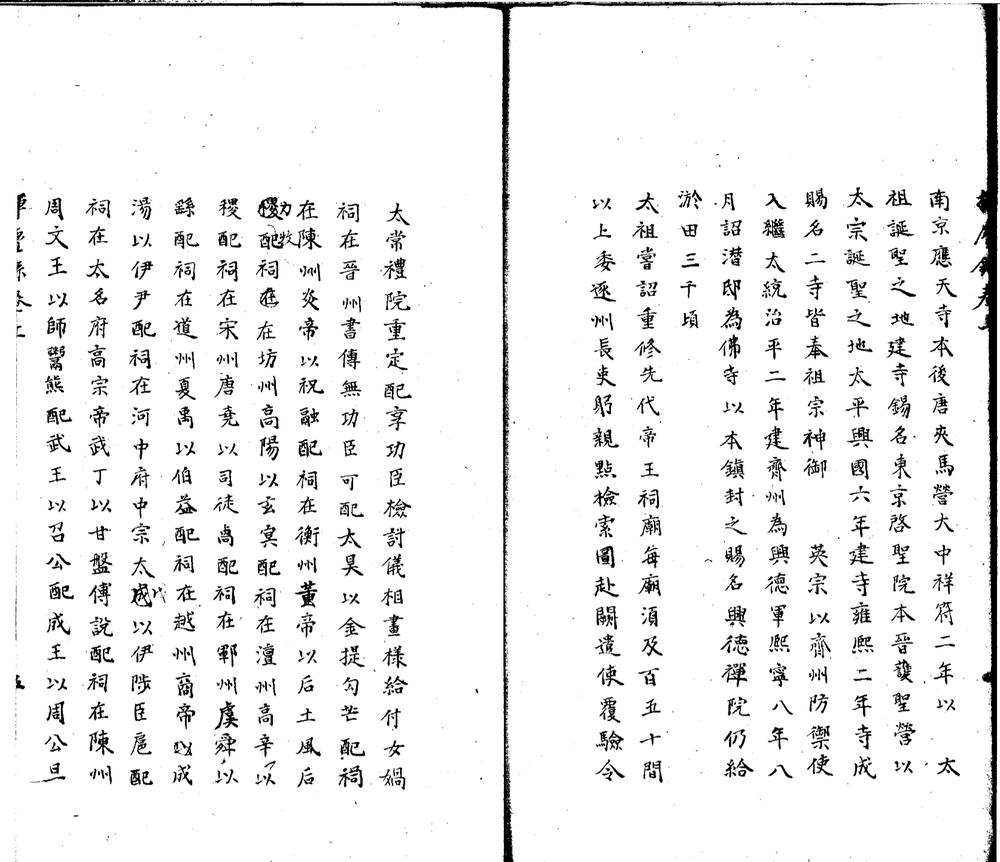 南京應天寺本後唐夾馬營大中祥符二年以 太
祖誕聖之地建寺錫名東京啓聖院本晉護聖營以
太宗誕聖之地太平興國六年建寺雍熙二年寺成
賜名二寺皆奉祖宗神御 英宗以齊州防禦使
入繼太統治平二年建齊州為興德軍熙寧八年八
月詔潛邸為佛寺以本鎮封之賜名興德禪院仍給
淤田三千頃
太祖嘗詔重修先代帝王祠廟每廟須及百五十間
以上委逐州長吏躬親點檢索圖赴闕遣使覆驗令
太常禮院重定配享功臣檢討儀相畫樣給付女媧
祠在晉州書傳無功臣可配太昊以金提勾芒配祠
在陳州炎帝以祝融配祠在衡州董帝以后土風后
力牧配祠在坊州高陽以玄冥配祠在澶州高辛以
稷配祠在宋州唐堯以司徒卨配祠在鄆州虞舜以
繇配祠在道州夏禹以伯益配祠在越州商帝以成
湯以伊尹配祠在河中府中宗太戊以伊陟臣扈配
祠在太名府高宗帝武丁以甘盤傅說配祠在陳州
周文王以師鬻熊配武王以召公配成王以周公旦